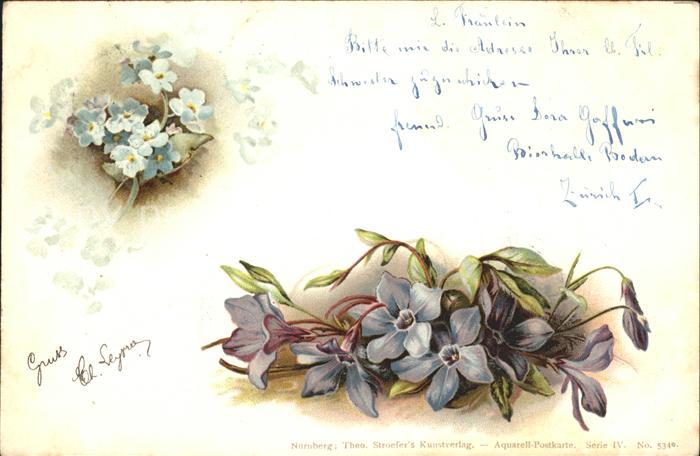 L. Fräulein
Bitte mir die Adresse Ihrer lb. Frl.
Schwester zuzuschicken
freund. Gruss Dora Gaffuri
Bierhalle Boden
Zürich I.
Gruss
Nürnberg; Theo. Stroefer's Kunstverlag. — Aquarell-Postkarte. Serie IV. No. 5340.